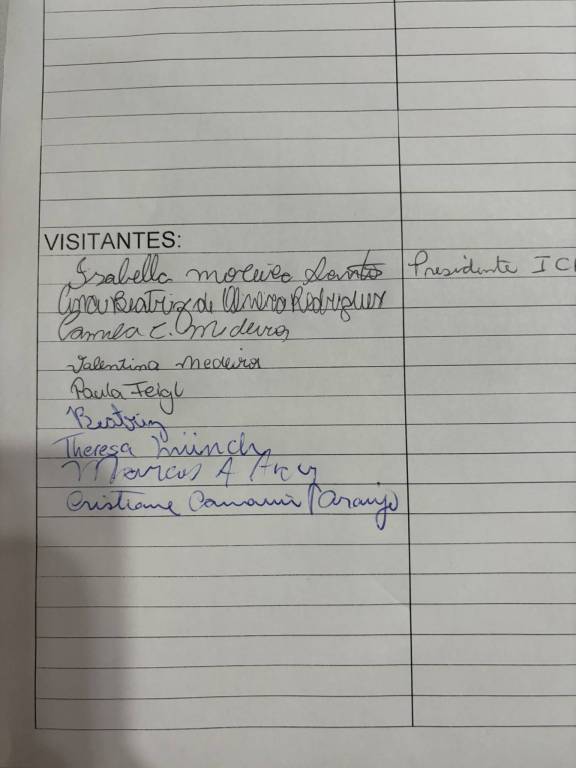 VISITANTES:
Isabella Moreira Santos Presidente IC
Beatriz de Rodrigues
Camila C. Medeiros
Valentina Medeiros
Paula Feigl
Beatriz
Theresa Münch
Marcos A
Cristiane Araujo